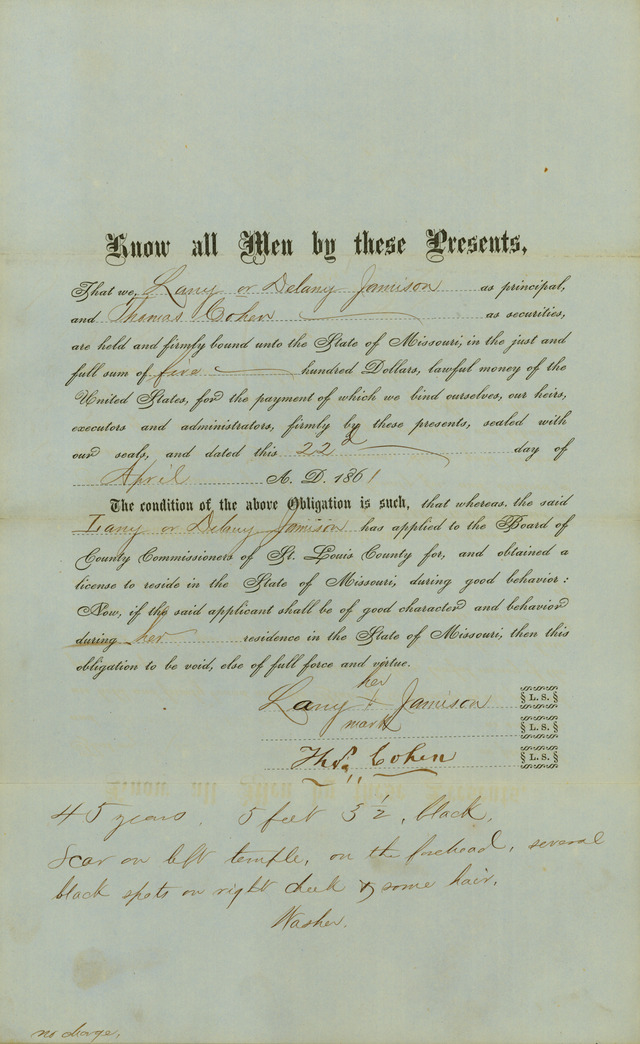 Know all Men by these Presents,
That we, Lany or Delany Jamison as principal,
and Thomas Cohen as securities,
are held and firmly bound unto the State of Missouri, in the just and
full sum of five hundred Dollars, lawful money of the
United States, for the payment of which we bind ourselves, our heirs,
executors and administrators, firmly by these presents, sealed with
our seals, and dated this 22d day of
April A. D. 1861
The condition of the above Obligation is such, that whereas, the said
Lany or Delany Jamison has applied to the Board of
County Commissioners of St. Louis County for, and obtained a
license to reside in the State of Missouri, during good behavior:
Now, if the said applicant shall be of good character and behavior
during her residence in the State of Missouri, then this
obligation to be void, else of full force and virtue.
her
Lany X Jamison L. S.
mark L. S.
Thos Cohen L. S.
45 years, 5 feet 3 1/2, black,
Scar on left temple, on the forehead, several
black spots on right cheek & some hair,
Washer.
no charge,